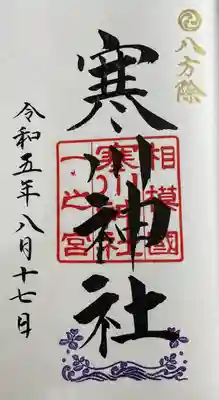 八方除
寒川神社
相模國
寒川神社
一之宮
令和五年八月十七日